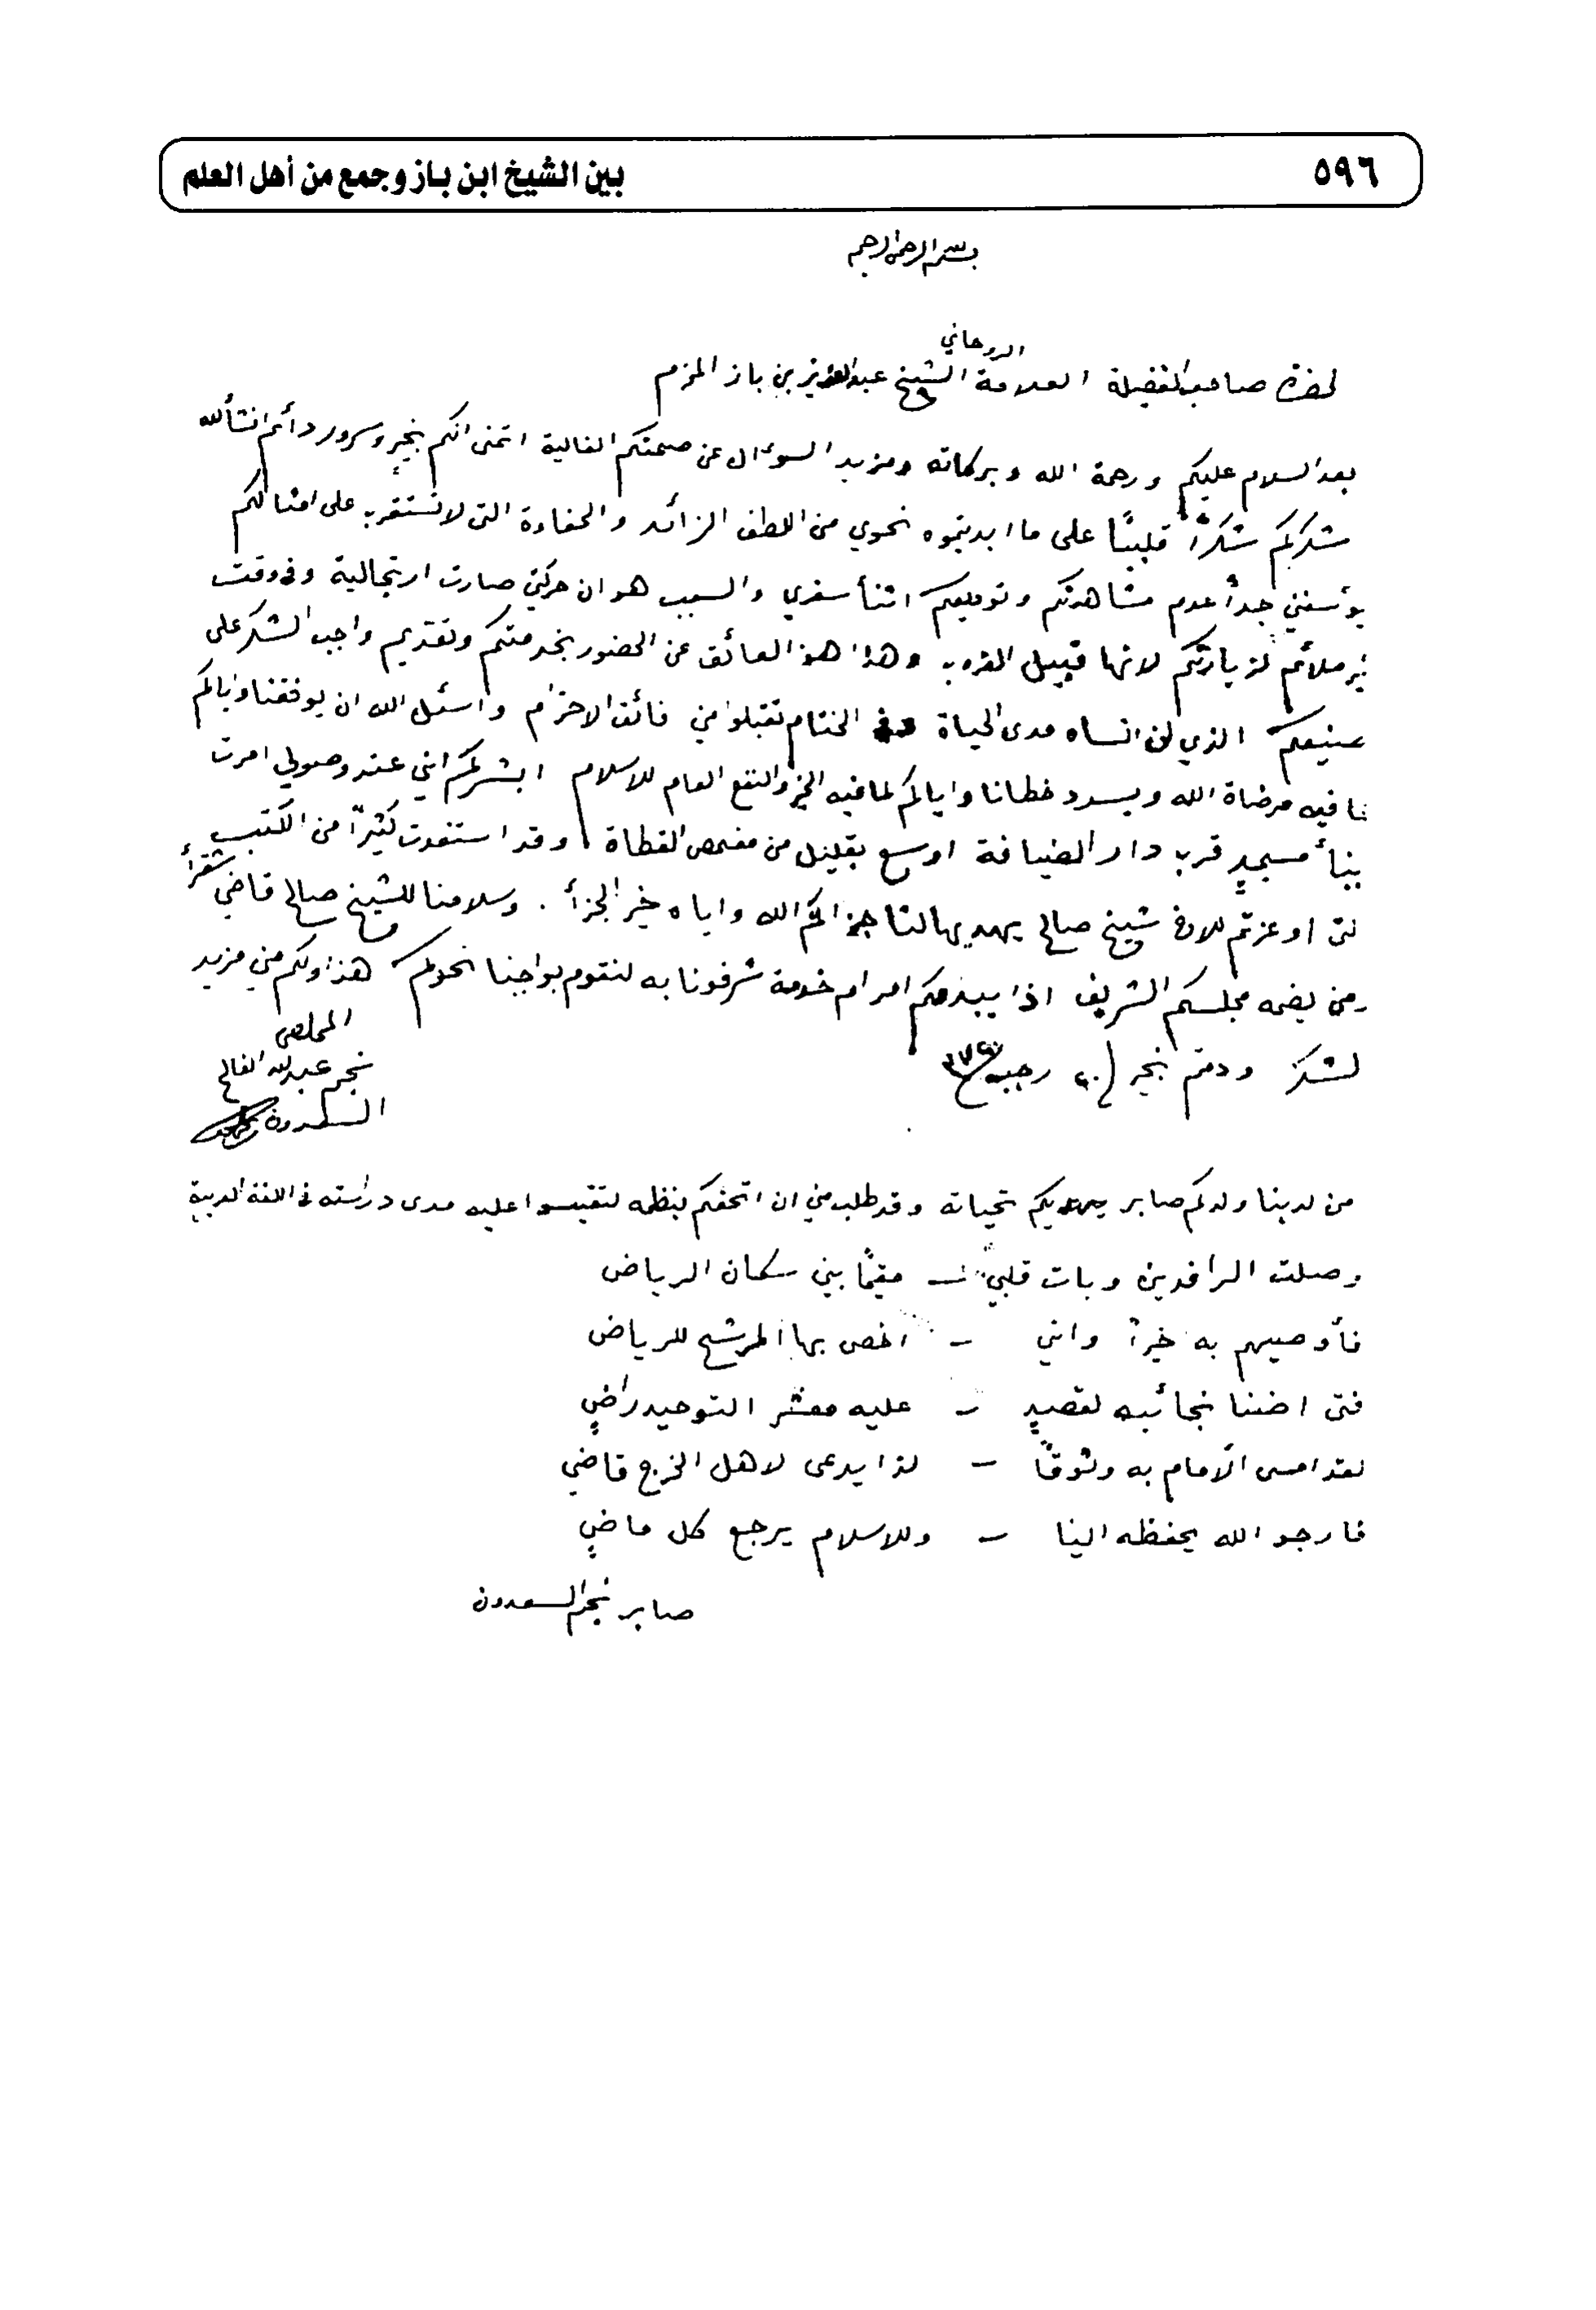 ٥٩٦
بين الشيخ ابن باز وجمع من أهل العلم
بسم الله الرحمن الرحيم
الروحاني
لحضرة صاحب الفضيلة العلامة الشيخ عبدالعزيز بن باز المحترم
بعد السلام عليكم ورحمة الله وبركاته ومزيد السوءال عن صحتكم الغالية اتمنى انكم بخير وسرور دائم انشأ لله
شكركم شكراً قلبيًا على ما ابديتموه نحوي من اللطف الزائد والحفاوة التى لا تستغرب على امثالكم
يؤسفني جداً عدم مشاهدتكم وتوديعكم اثنأ سفري والسبب هو ان حركتي صارت ارتجالية وفى وقت
غير ملائم لزيارتكم لانها قبيل الغروب وهذا هو العائق عن الحضور بخدمتكم وتقديم واجب الشكر على
صنيعكم الذي لن انساه مدى الحياة الختام تقبلوا مني فائق الاحترام واسئل الله ان يوفقنا واياكم
لما فيه مرضاة الله ويسدد خطانا واياكم لما فيه الخير والنفع العام للاسلام ابشركم انني عند وصولي امرت
ببنأ مسجدٍ قرب دار الضيافة اوسع بقليل من مفحص القطاة وقد استفدت كثيراً من الكتب
لتى اوعزتم للاخ شيخ صالح يهديها لنا جزاكم الله واياه خير الجزأ . وسلامنا للشيخ صالح قاضي شقرأ
ومن يضمه مجلسكم الشريف اذا يبدو لكم امر ام خدمة شرفونا به لنقوم بواجبنا نحوكم هذا ولكم مني مزيد
لشكر ودمتم بخير ٢٠ رجب
المخلص
نجم عبدالله الفالح
السعدون
من لدينا ولدكم صابر يهديكم تحياته وقد طلب مني ان اتحفكم بنظمه لتقيسوا عليه مدى دراسته فى اللغة العربية
وصلت الرافدين وبات قلبي – مقيمًا بين سكان الرياض
فأوصيهم به خيراً وانني – اخص بها المرشح للرياض
فتى اضننا نجائبه لقصدٍ – عليه معشر التوحيد راضٍ
لقد امسى الأمام به وثوقًا – لذا يدعى لاهل الخرج قاضي
فارجو الله يحفظه الينا – وللاسلام يرجع كل ماضيٍ
صابر نجم السعدون